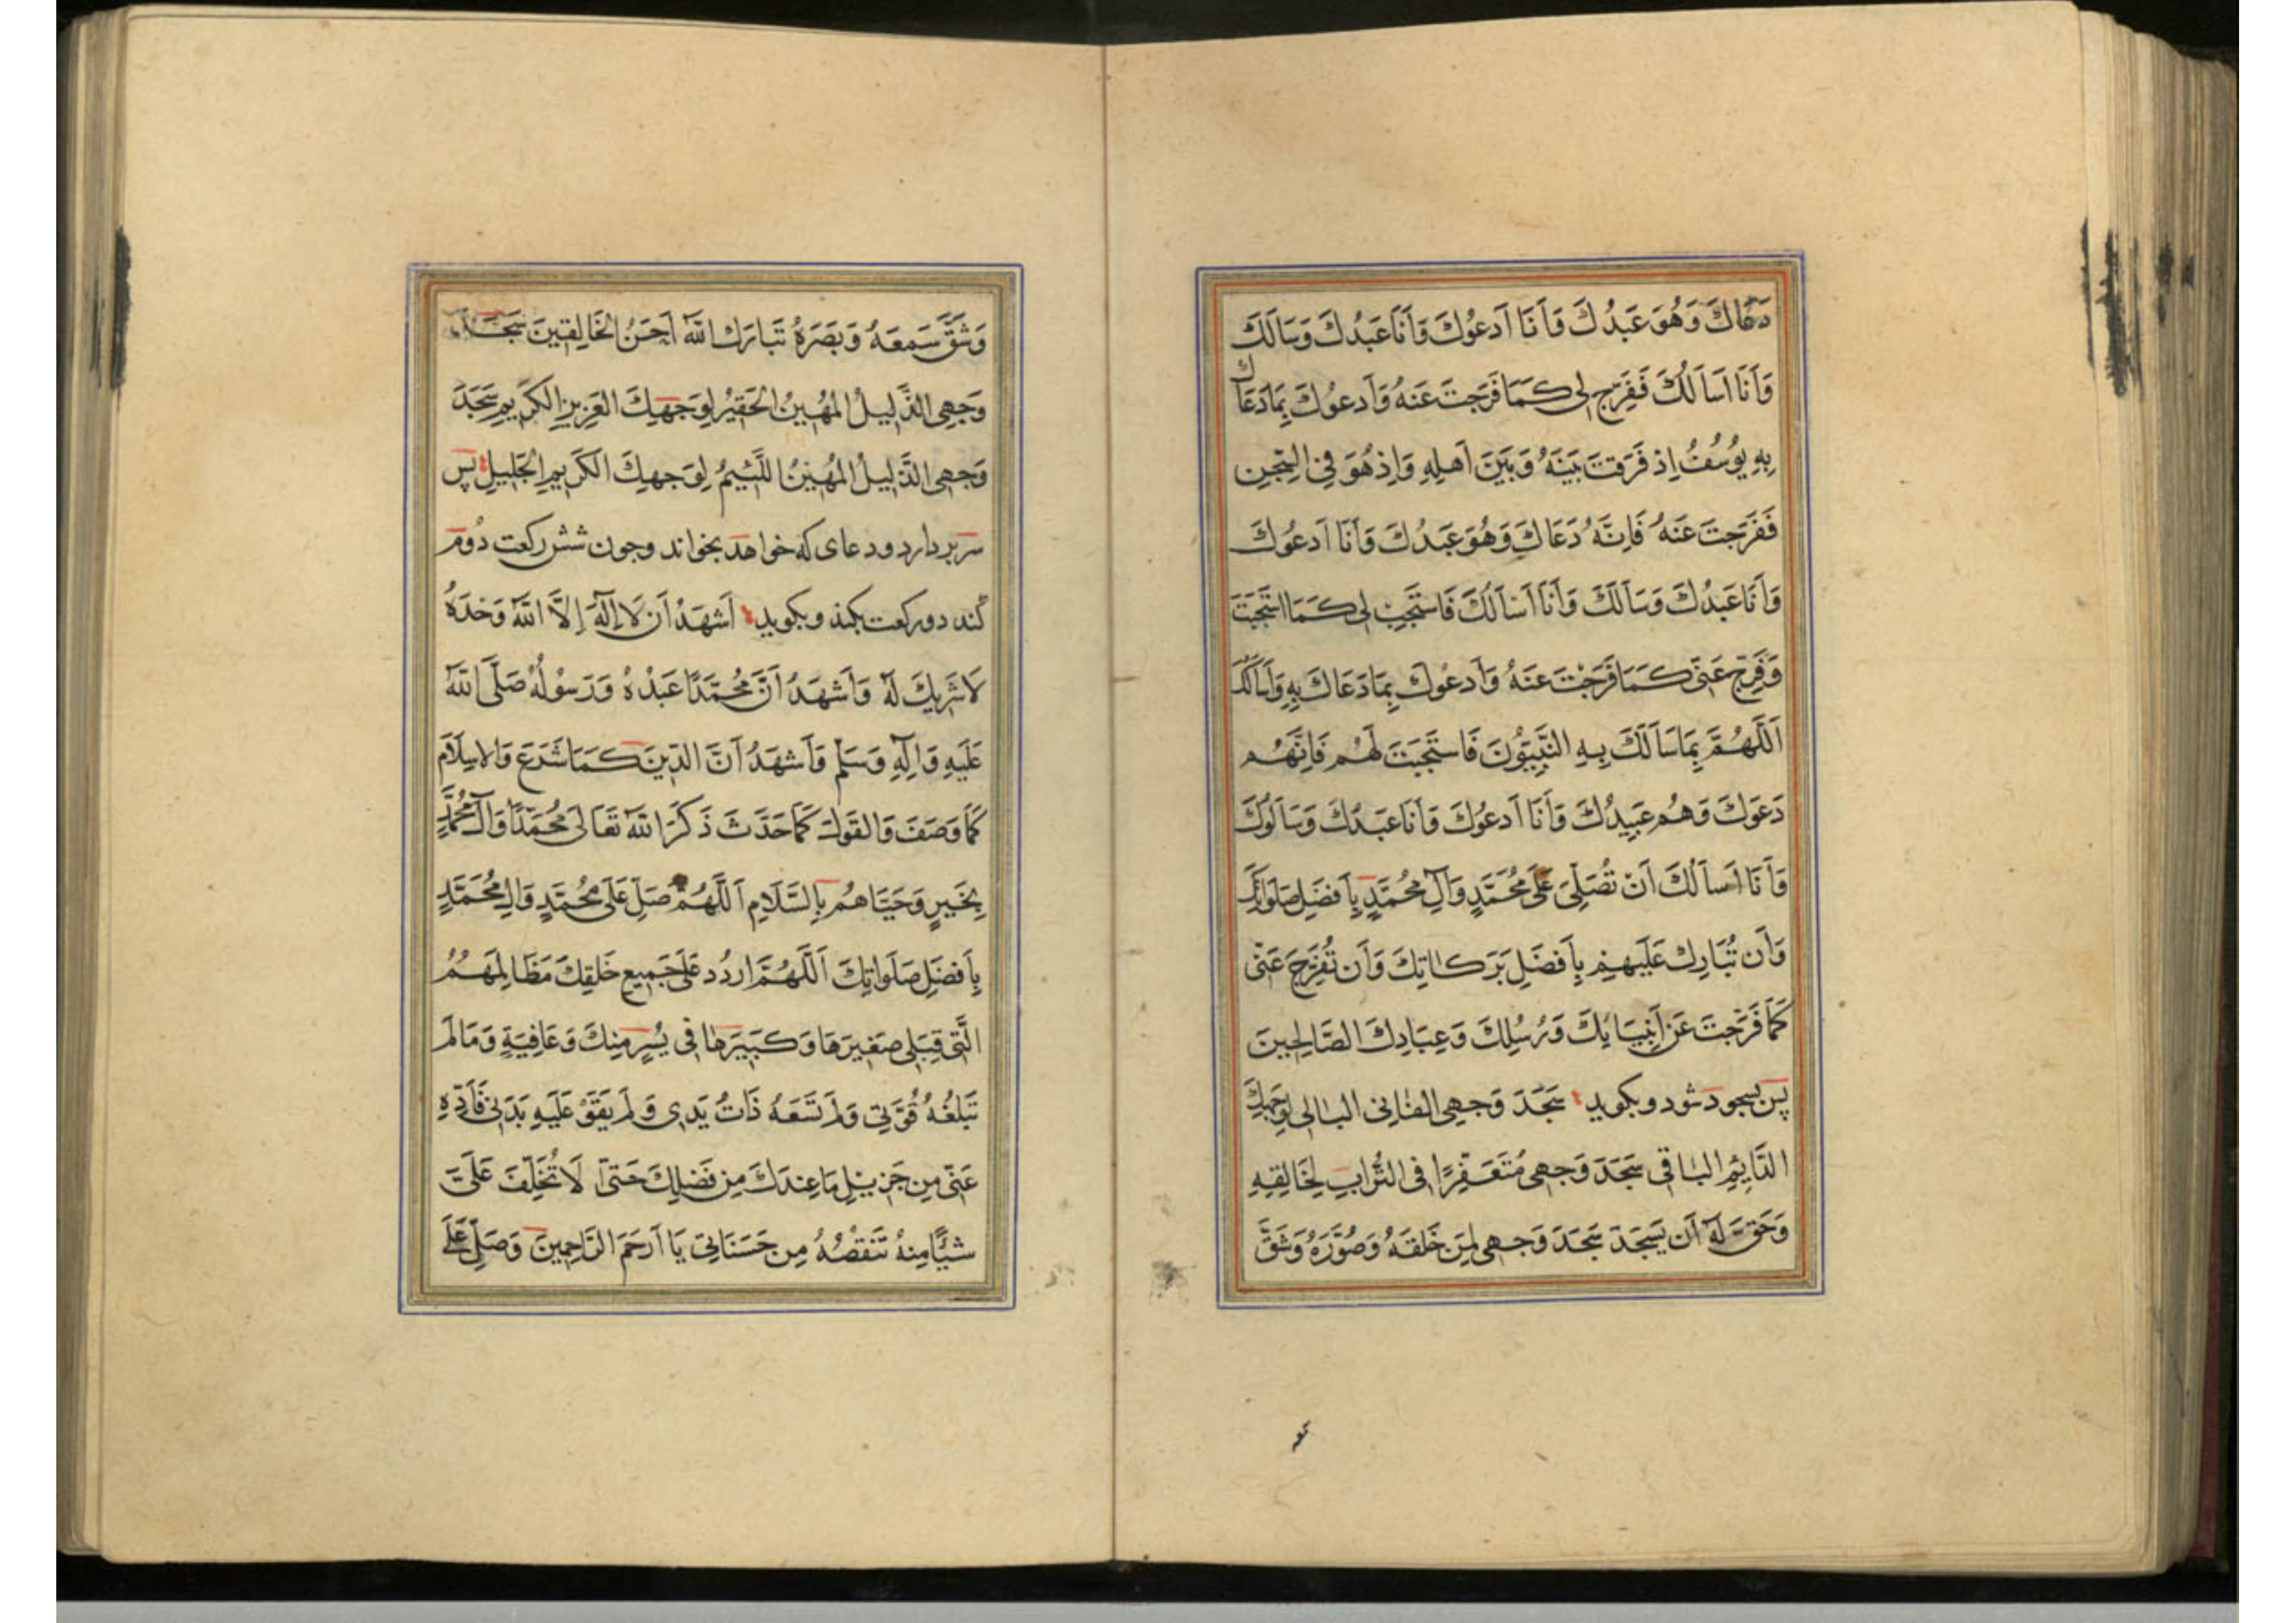 دَعَاكَ وَهُوَ عَبدُكَ وَاَنَا اَدعُوكَ وَاَنَا عَبدُكَ وَسَاَلَكَ
وَاَنَا اَسَاَلُكَ فَفَرِّج لِي كَمَا فَرَّجتَ عَنهُ وَاَدعُوكَ بِمَا دَعَاكَ
بِهِ يُوسُفُ اِذ فَرَّقتَ بَينَهُ وَبَينَ اَهلِهِ وَاِذ هُوَ فِي السِّجنِ
فَفَرَّجتَ عَنهُ فَاِنَّهُ دَعَاكَ وَهُوَ عَبدُكَ وَاَنَا اَدعُوكَ
وَاَنَا عَبدُكَ وَسَاَلَكَ وَاَنَا اَسْاَلُكَ فَاستَجِبْ لِي كَمَا استَجَبتَ
وَفَرِّج عَنِّي كَمَا فَرَّجْتَ عَنهُ وَاَدعُوكَ بِمَا دَعَاكَ بِهِ وَاَسَاَلُكَ
اَللَّهُمَّ بِمَا سَاَلَكَ بِهِ النَّبِيُّونَ فَاستَجَبتَ لَهُم فَاِنَّهُم
دَعَوكَ وَهُم عَبِيدُكَ وَاَنَا اَدعُوكَ وَاَنَا عَبدُكَ وَسَاَلُوكَ
وَاَنَا اَسَاَلُكَ اَنْ تُصَلِّيَ عَلَى مُحَمَّدٍ وَآلِ مُحَمَّدٍ بِاَفضَلِ صَلَوَاتِكَ
وَاَن تُبَارِكَ عَلَيهِم بِاَفضَلِ بَرَكَاتِكَ وَاَن تُفَرِّجَ عَنِّي
كَمَا فَرَّجْتَ عَن اَنبِيَائِكَ وَرُسُلِكَ وَعِبَادِكَ الصَّالِحِينَ
پس بسجود شود و بكويد سَجَدَ وَجهِي الفَانِي البَالِي لِوَجهِكَ
الدَّائِمِ البَاقِي سَجَدَ وَجهِي مُتَعَفِّرًا فِي التُّرَابِ لِخَالِقِهِ
وَحَقَّ لَهُ اَن يَسجُدَ سَجَدَ وَجهِي لِمَن خَلَقَهُ وَصَوَّرَهُ وَشَقَّ
وَشَقَّ سَمعَهُ وَبَصَرَهُ تَبَارَكَ اللهُ اَحسَنُ الخَالِقِينَ سَجَدَ
وَجهِي الذَّلِيلُ المُهِينُ الحَقِيرُ لِوَجهِكَ العَزِيزِ الكَرِيمِ سَجَدَ
وَجهِي الذَّلِيلُ المُهِينُ اللَّئِيمُ لِوَجهِكَ الكَرِيمِ الجَلِيلِ پس
سر بردارد و دعای که خواهد بخواند و جون شش رکعت دُوم
کند دو رکعت بکند و بکوید اَشهَدُ اَن لَا اِلٰهَ اِلَّا اللهُ وَحْدَهُ
لَا شَرِيكَ لَهُ وَاَشهَدُ اَنَّ مُحَمَّدًا عَبدُهُ وَرَسُولُهُ صَلَّى اللهُ
عَلَيهِ وَآلِهِ وَسَلَّم وَاَشهَدُ اَنَّ الدِّينَ كَمَا شَرَعَ وَالاِسلَامَ
كَمَا وَصَفَ وَالقَولَ كَمَا حَدَّثَ ذَكَرَ اللهُ تَعَالَى مُحَمَّدًا وَآلَ مُحَمَّدٍ
بِخَيرٍ وَحَيَّاهُم بِالسَّلَامِ اَللَّهُمَّ صَلِّ عَلَى مُحَمَّدٍ وَآلِ مُحَمَّدٍ
بِاَفضَلِ صَلَوَاتِكَ اَللَّهُمَّ اردُد عَلَى جَمِيعِ خَلقِكَ مَظَالِمَهُمُ
الَّتِي قِبَلِي صَغِيرَهَا وَكَبِيرَهَا فِي يُسرٍ مِنكَ وَعَافِيَةٍ وَمَا لَم
تَبلُغهُ قُوَّتِي وَلَم تَسَعهُ ذَاتُ يَدِي وَلَم يَقوَ عَلَيهِ بَدَنِي فَاَدِّهِ
عَنِّي مِن جَزِيلِ مَا عِندَكَ مِن فَضلِكَ حَتَّى لَا تُخَلِّفَ عَلَيَّ
شَيئًا مِنهُ تَنقُصُهُ مِن حَسَنَاتِي يَا اَرحَمَ الرَّاحِمِينَ وَصَلِّ عَلَى